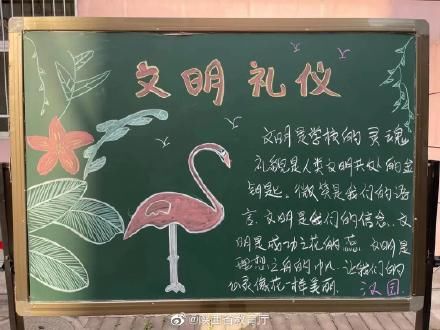 文明礼仪
文明是学校的灵魂
礼貌是人类文明共处的金
钥匙。微笑是我们的语
言。文明是我们的信念。文
明是成功之花的蕊。文明是
理想之舟的帆。让我们的
心灵像花一样美丽。汉国
@陕西省教育厅